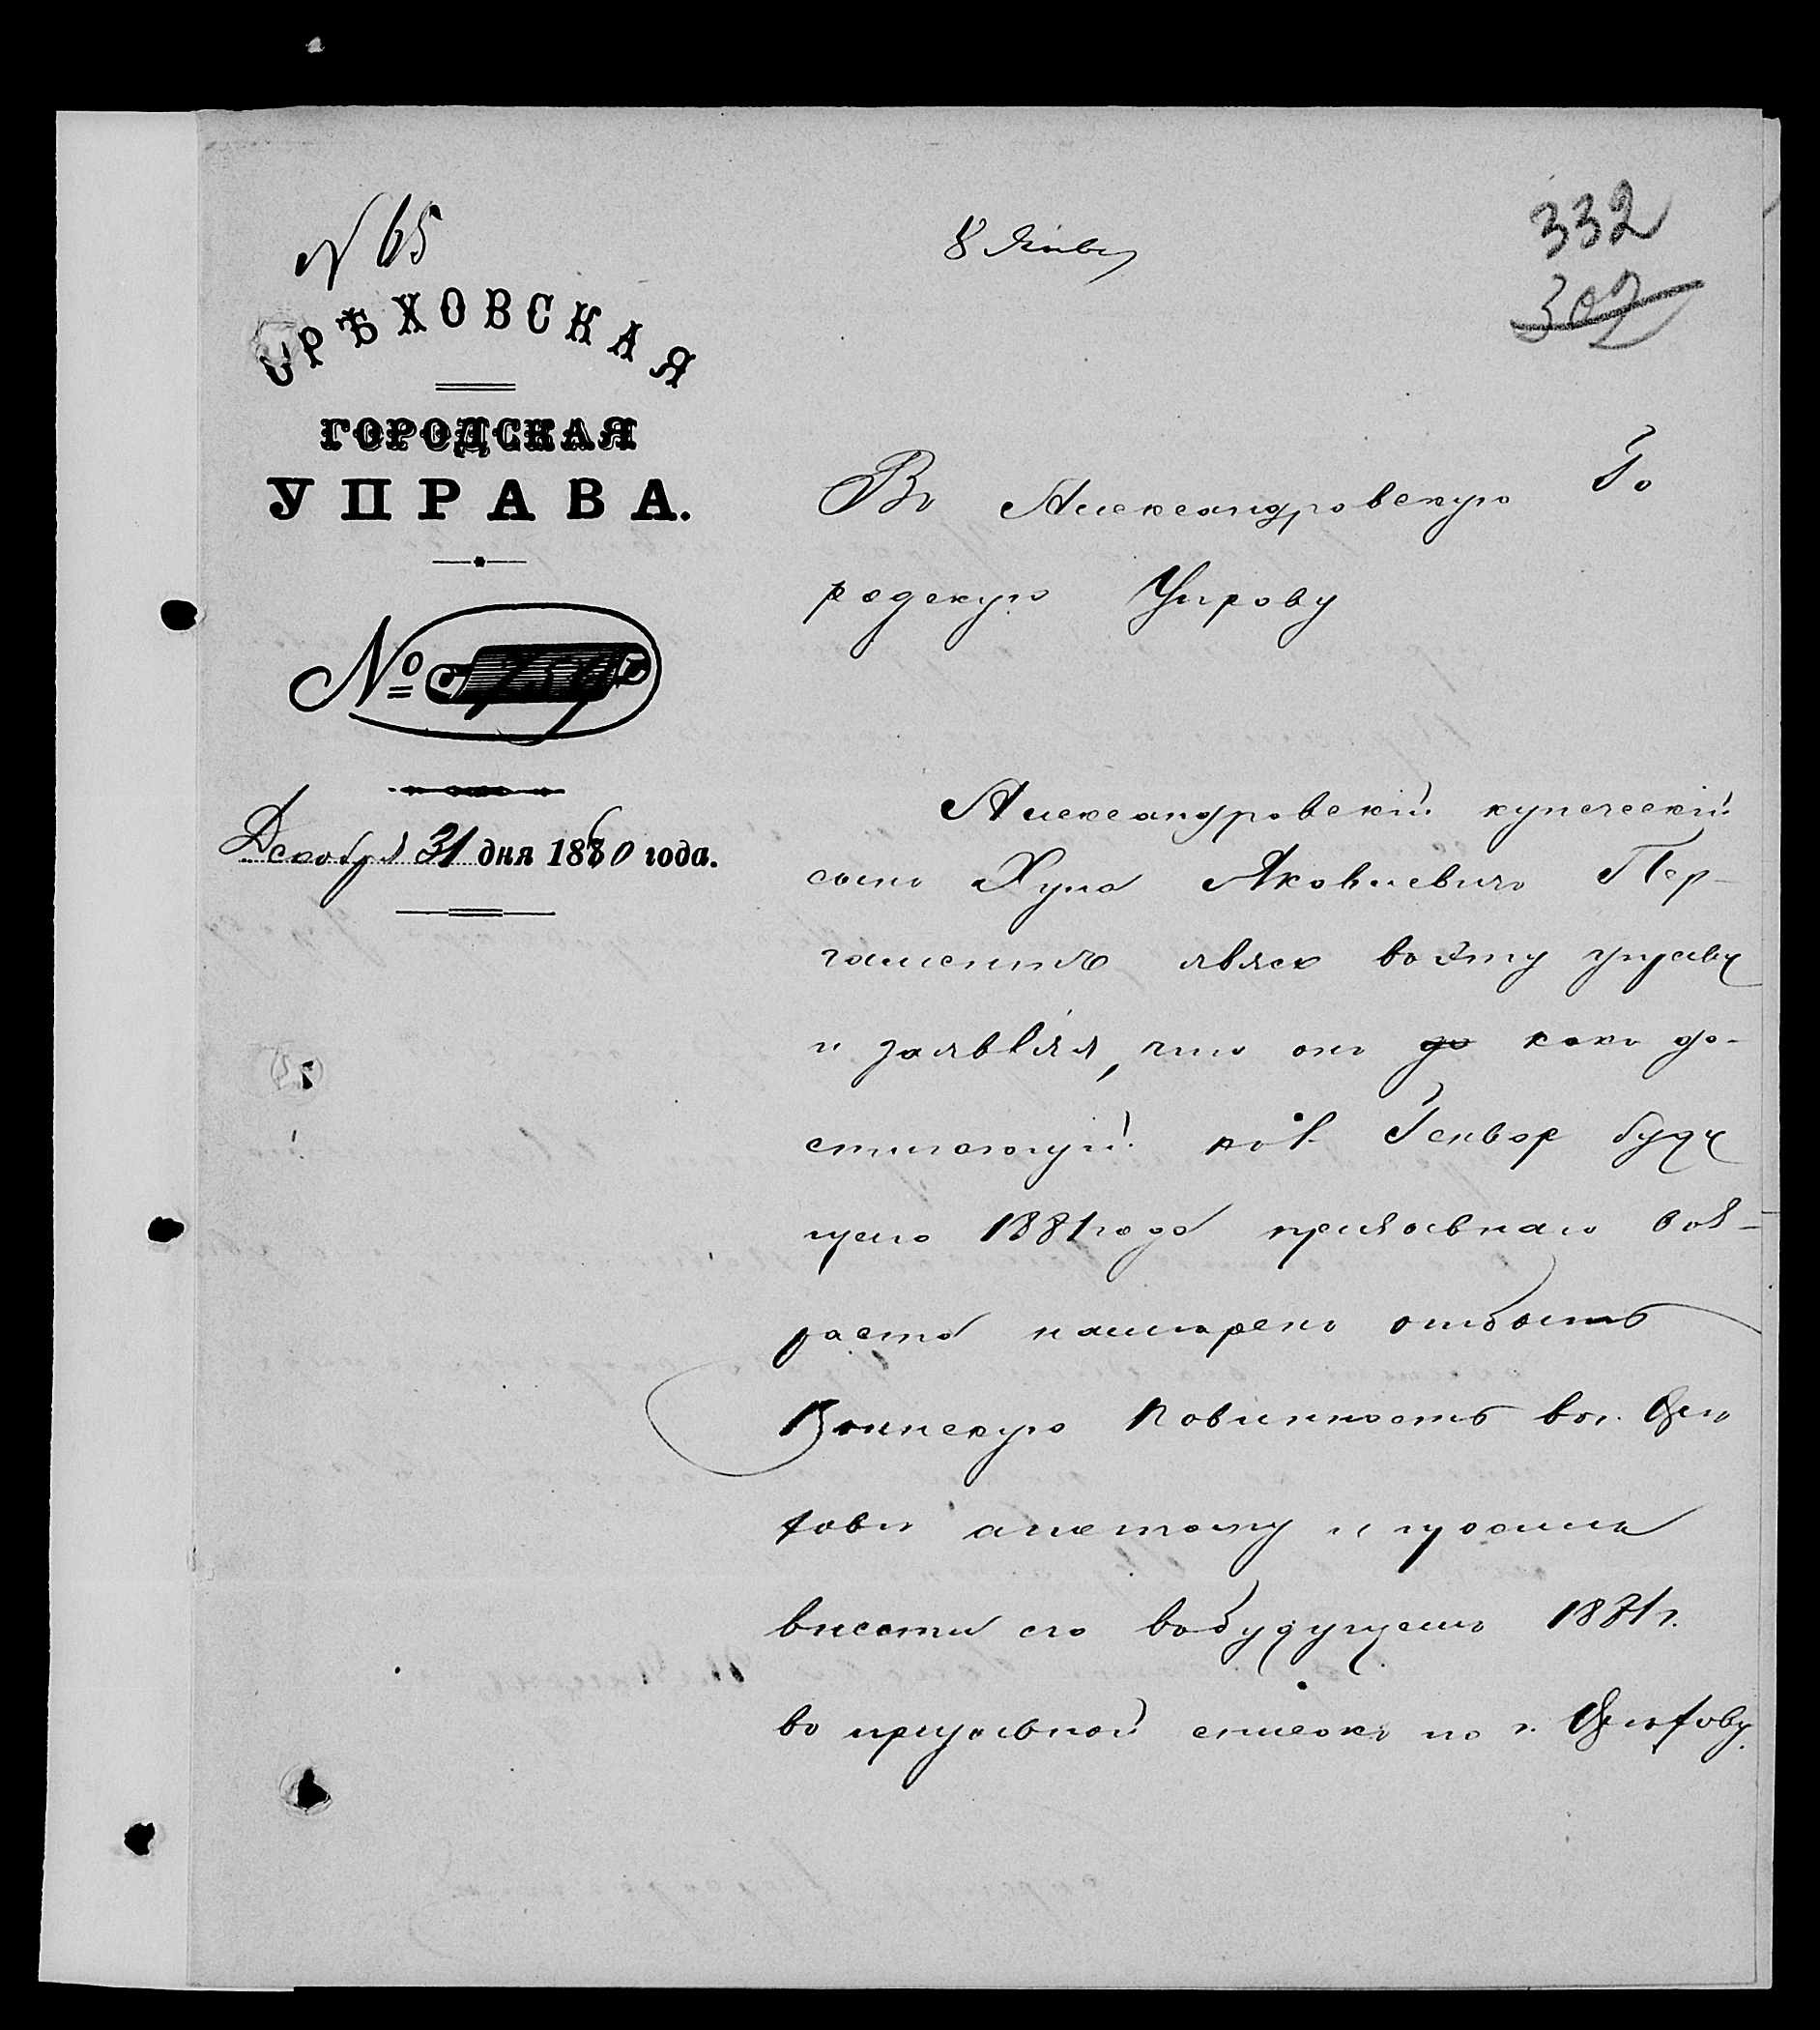 N 65
8 Янв
332
302
ОРѢХОВСКАЯ
ГОРОДСКАЯ
УПРАВА.
№ 759
Декабря 31 дня 1880 года.
Въ Александровскую Го
родскую Управу
Александровскій купеческій
сынъ Хуна Яковлевичъ Пер-
гаментъ явясь въ эту управу
и заявляя, что онъ до какъ до-
стигающій къ 1 Генвар буду
щаго 1881 года призывнаго воз-
раста намѣренъ отбыть
Воинскую Повинность въ г. Орѣ
ховѣ а потому и просилъ
внести его въ будущемъ 1881 г.
въ призывной списокъ по г. Орѣхову.